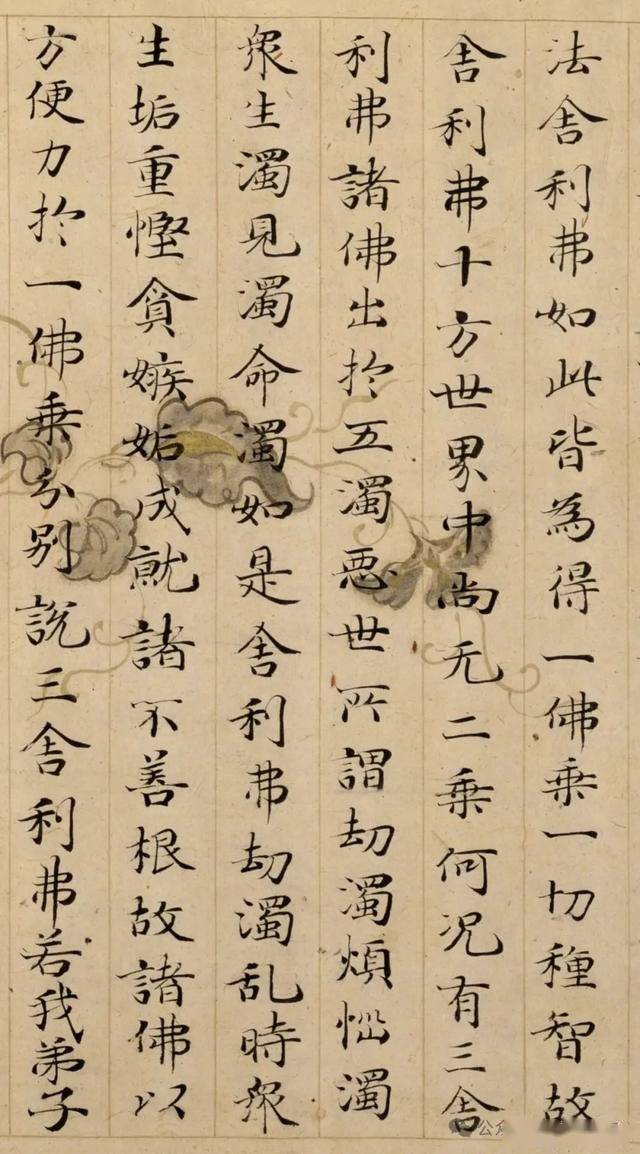 法舍利弗如此皆為得一佛乗一切種智故
舍利弗十方世界中尚无二乗何况有三舍
利弗諸佛出於五濁惡世所謂劫濁煩惱濁
衆生濁見濁命濁如是舍利弗劫濁乱時衆
生垢重慳貪嫉妬成就諸不善根故諸佛以
方便力於一佛乗分別說三舍利弗若我弟子
公众